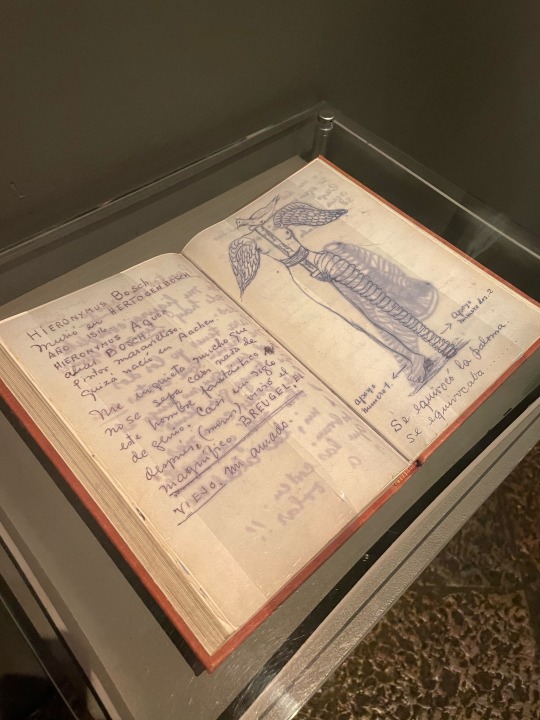 HIERONYMUS BOSCH.
Murió en HERTOGENBOSCH
AÑO 1516
HIERONYMUS AQUEN
alias BOSCH.
pintor maravilloso.
Quizá nació en Aachen.
Me inquieta mucho que
no se sepa casi nada de
este hombre fantástico
de genio. Casi un siglo
después, (menos) vivió el
magnífico BREUGEL, EL
VIEJO, mi amado.
apoyo
número 1.
apoyo
número dos. 2
Se equivocó la paloma
se equivocaba